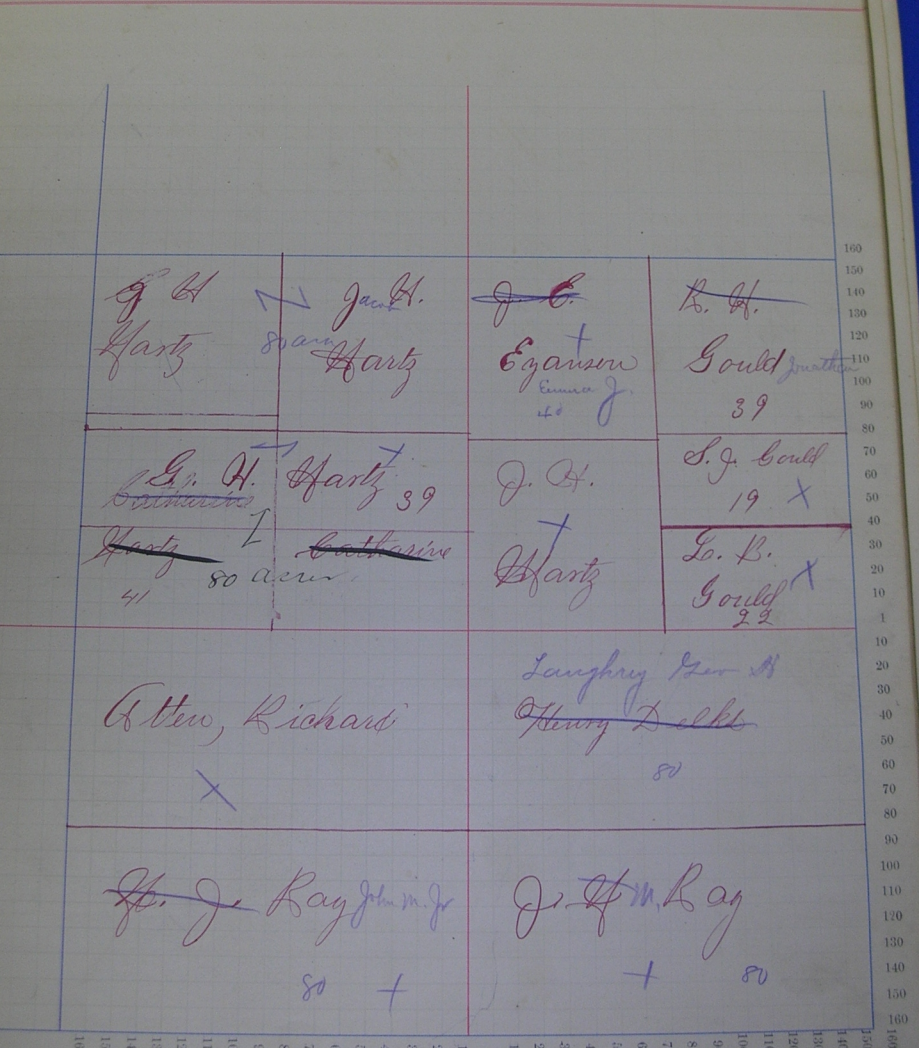 G H
Hartz
80 acre
Jacob H.
Hartz
J. E.
Ezanson
Emma J.
40
R. H.
Gould Jonathan
39
G. H. Hartz
Catharine
39
Hartz Catharine
80 acres
41
J. H.
Hartz
S. J. Gould
19 X
L. B.
Gould X
22
Atten, Richard
X
Laughrey Geo H
Henry Delks
80
H. J. Ray John M. Jr
80 +
J. H M. Ray
+ 80
160
150
140
130
120
110
100
90
80
70
60
50
40
30
20
10
1
10
20
30
40
50
60
70
80
90
100
110
120
130
140
150
160